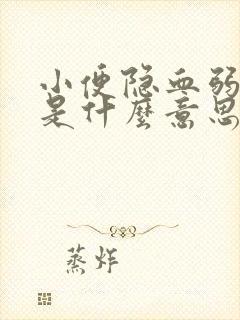 小便隐血弱
是什麽意思
蒸炸